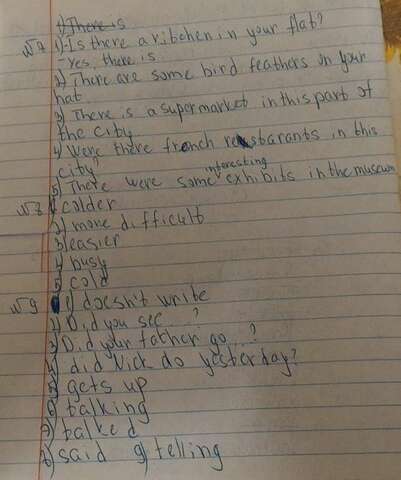 1) There is
№7 1) - Is there a kitchen in your flat?
- Yes, there is
2) There are some bird feathers on your
hat
3) There is a supermarket in this part of
the city
4) Were there french restarants in this
city?
5) There were some interesting exhibits in the museum
№8 1) colder
2) more difficult
3) easier
4) busy
5) cold
№9 1) doesn't write
2) Did you see...?
3) Did your father go...?
4) did Nick do yesterday?
5) gets up
6) talking
7) talked
8) said 9) telling